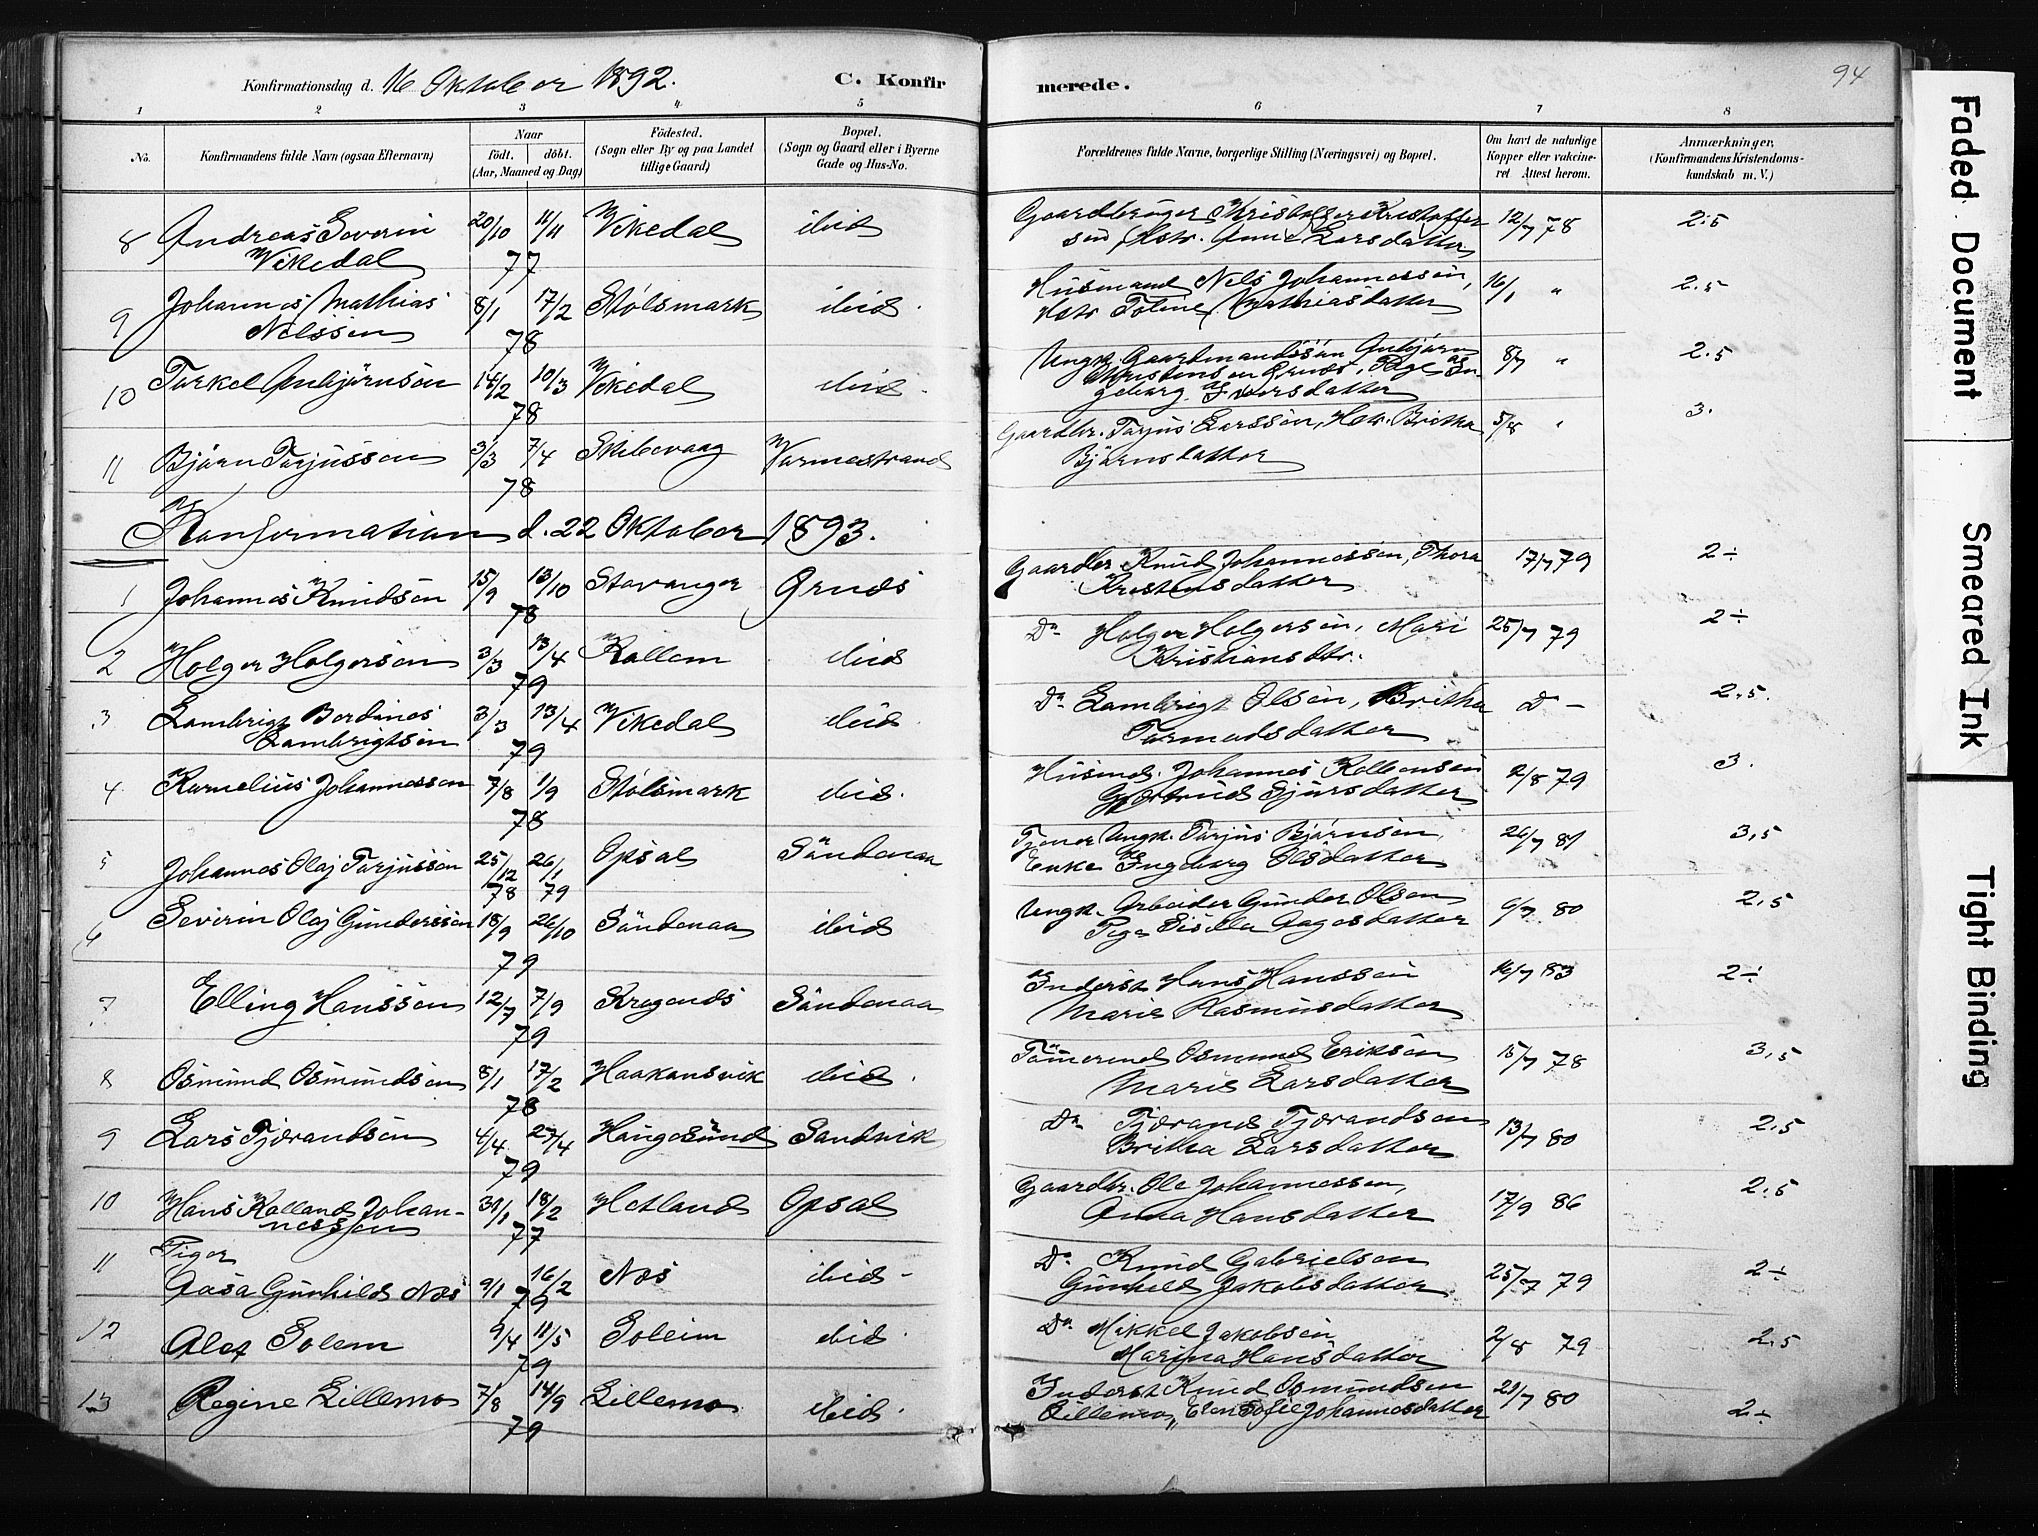 Konfirmationsdag d. 16 Oktober 1892. C. Konfirmerede. 94
1 2 3 4 5 6 7 8
No. Konfirmandens fulde Navn (ogsaa Efternavn) Naar födt. döbt. (Aar, Maaned og Dag) Födested. (Sogn eller By og paa Landet tillige Gaard) Bopæl. (Sogn og Gaard eller i Byerne Gade og Hus-No. Forældrenes fulde Navne, borgerlige Stilling (Næringsvei) og Bopæl. Om havt de naturlige Kopper eller vakcineret Attest herom. Anmærkninger, (Konfirmandens Kristendomskundskab m. V.)
8 Andreas Severin 20/10 11/11 Vikedal ibid Gaardbruger Kristoffer Kristoffer 12/7 78 2.5
Vikedal 77 sen, Hstr. Anne Larsdatter
9 Johannes Mathias 8/1 17/2 Stølsmark ibid. Husmand Nils Johannessen, 16/1 " 2.5
Nilssen 78 Hstr Toline Mathiasdatter
10 Torkel Anbjørnsen 14/2 10/3 Vikedal ibid. Ungk. Gaardmandssøn Anbjørn 8/7 " 2.5
78 Ingeborg Iversdatter
11 Bjørn Tarjussen 3/3 7/4 Skibevaag Varmestrand Gaardbr. Tarjus Larssen, Hstr. Britha 5/8 " 3.
78 Bjørnsdatter
Konfirmation d. 22 Oktober 1893.
1 Johannes Knudsen 15/9 13/10 Stavanger Ørnes Gaardbr Knud Johannessen, Thora 17/7 79 2÷
78 Kristensdatter
2 Holger Holgersen 3/3 13/4 Kallem ibid Do Holger Holgersen, Mari 25/7 79 2÷
79 Kristiansdtr.
3 Lambrigt Berdines 3/3 13/4 Vikedal ibid Do Lambrigt Olsen, Britha D - 2.5.
Lambrigtsen 79 Tormodsdatter
4 Kornelius Johannessen 7/8 1/9 Stølsmark ibid. Husmd. Johannes Kolbensen 2/8 79 3.
78 Gjertrud Sjursdatter
5 Johannes Olaj Tarjussen 25/12 26/1 Opsal Søndenaa Tjener Ungk. Tarjus Bjørnsen, 26/7 81 3,5
78 79 Enke Ingeborg Olsdatter
6 Severin Olaj Gunderssen 18/9 26/10 Søndenaa ibid Ungk. Arbeider Gunder Olsen 80 2,5
79 Pige Sisilla Aagesdatter
7 Elling Hanssen 12/7 7/9 Søndenaa Inderst Hans Hanssen 16/7 83 2÷
79 Marie Rasmusdatter
8 Osmund Osmundsen 8/1 17/2 Haakonsvik ibid. Tømmermd Osmund Eriksen 15/7 78 3,5
78 Marie Larsdatter
9 Lars Tjerandsen 4/4 27/4 Haugesund Sandvik Do Tjerand Tjerandsen 13/7 80 2.5
79 Britha Larsdatter
10 Hans Kalland Johan- 31/1 18/2 Hetland Opsal Gaardbr. Ole Johannessen, 17/9 86 2.5
nessen 77 Anna Hansdatter
Piger
11 Aasa Gunhild Næs 9/1 16/2 Næs ibid - Do Knud Gabrielsen 25/7 79 2÷
79 Gunhild Jakobsdatter
12 Alet Solem 9/4 11/5 Soleim ibid. Do Mikkel Jakobsen 2/8 79 2.5
79 Marina Hansdatter
13 Regine Lillemo 7/8 14/9 Lillemo ibid. Inderst Knud Osmundsen 21/7 80 2÷
79 Lillemo, Elen Sofie Johannesdatter
Faded Document
Smeared Ink
Tight Binding